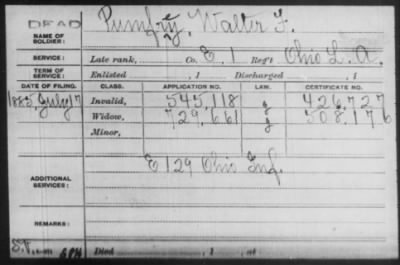 DEAD
NAME OF SOLDIER: Pumfry, Walter F.
SERVICE: Late rank, Co. E, 1 Reg't Ohio L. A.
TERM OF SERVICE: Enlisted , 1 Discharged , 1
DATE OF FILING. CLASS. APPLICATION NO. LAW. CERTIFICATE NO.
1885, July 17 Invalid, 545,118 426,727
Widow, 729,661 508,176
Minor,
ADDITIONAL SERVICES: E 129 Ohio Inf.
REMARKS:
Died , 1 , at